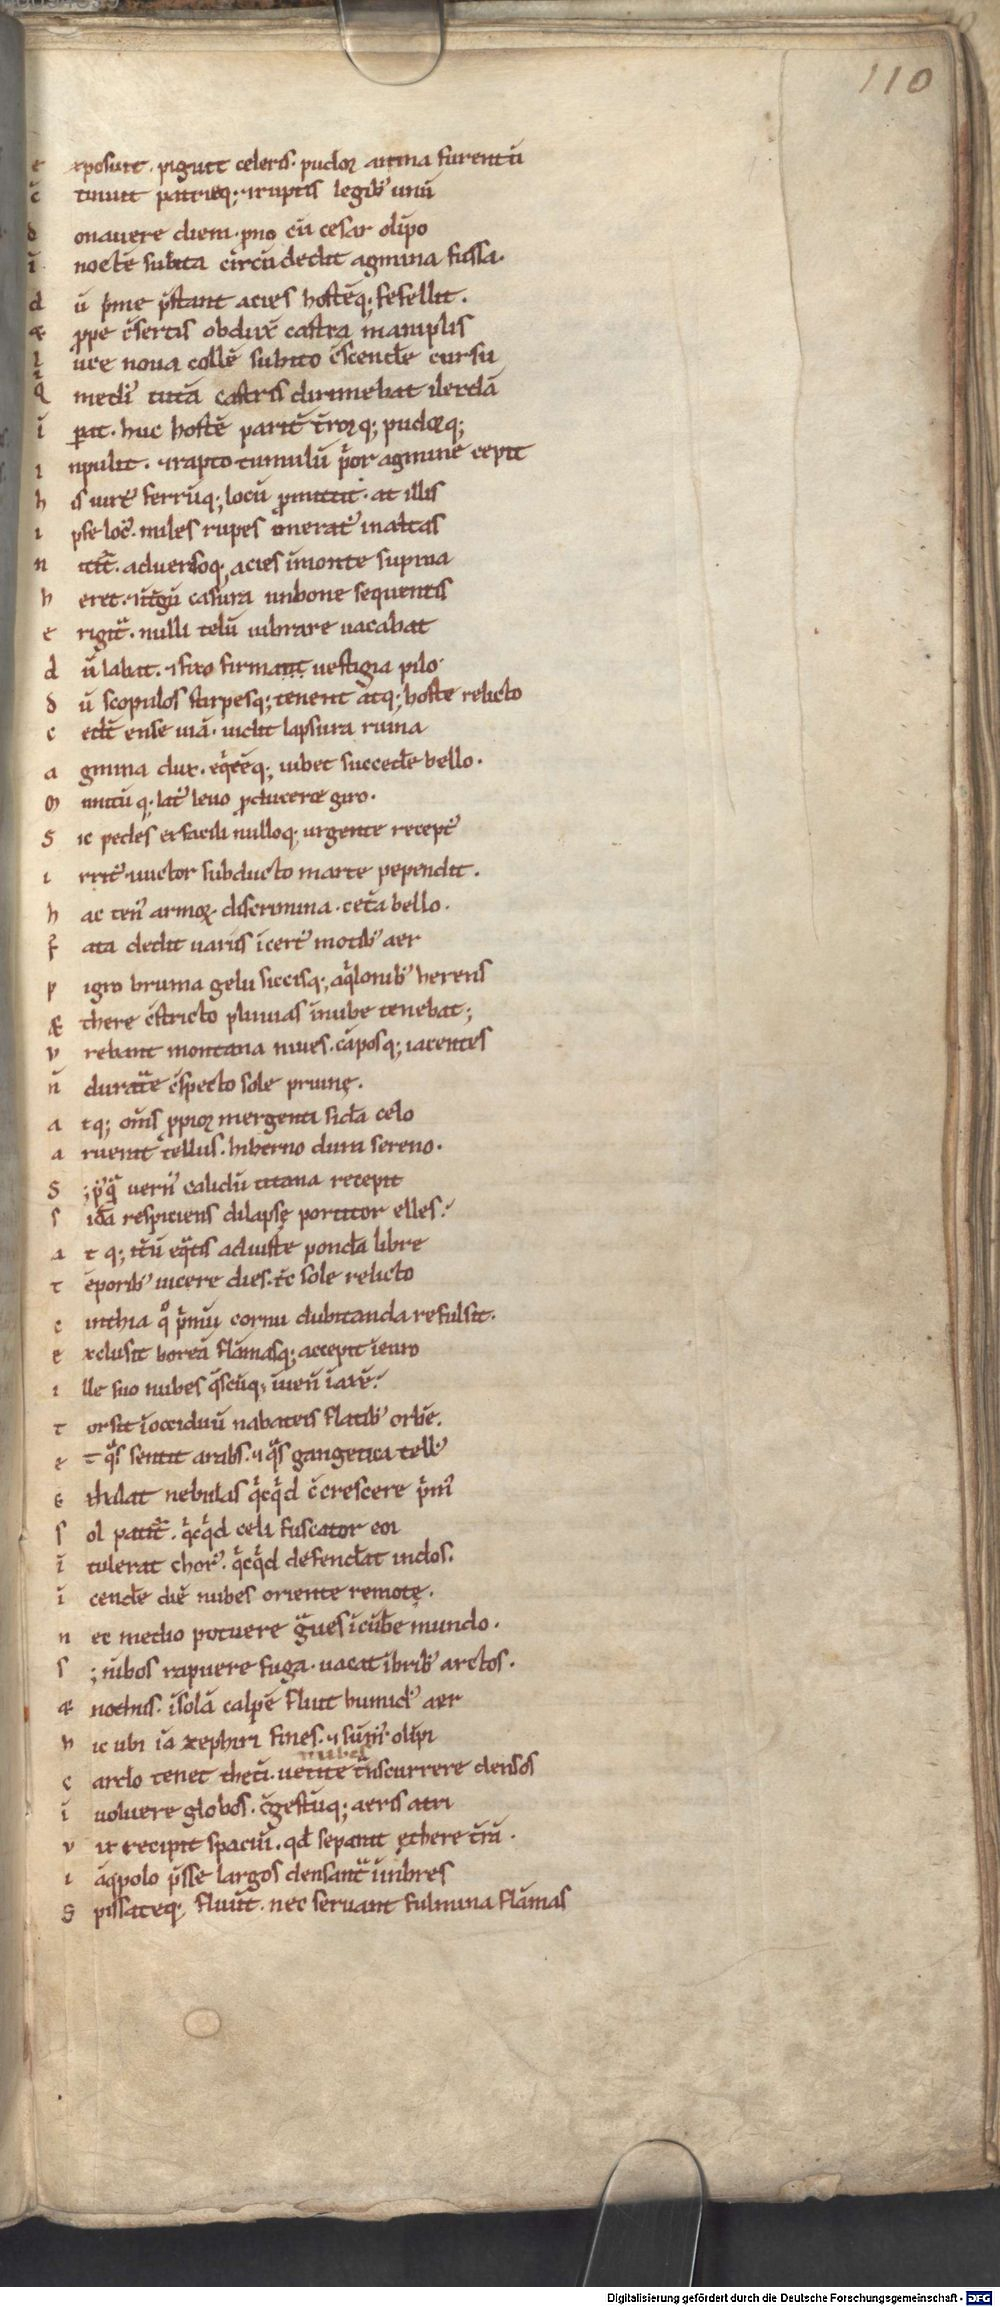 110
e xposuit. piguit celeris. pudoꝝ arma furentū
c̄ tinuit patrieq; ⁊ruptis legib' unū
d onauere diem. ꝓno cū cesar olīpo
ī noctē subita circūdedit agmina fossa.
d ū p̄me p̄stant acies hostēq; fefellit.
æ ꝓpe c̄sertis obdux̄ castra maniplis
l uce noua collē subito c̄scend̄e cursu
q̄ medi' tutā castris dirimebat ilerdā
ī ꝑat. huc hostē parit̄ t̄roꝝq; pudoꝝq;
i npulit. ⁊rapto tumulū p̄or agmine cepit
h is uirt' ferrūq; locū ꝓmittit. at illis
i pse loc'. miles rupes onerat' inaltas
n itit̄. aduersoq; acies īmonte supina
h eret. ⁊ītḡū casura unbone sequentis
e rigit̄. nulli telū uibrare uacabat
d ū labat. ⁊fixo firmant uestigia pilo.
d ū scopulos stirpesq; tenent atq; hoste relicto
c ed̄t ense uiā. uidit lapsura ruina
a gmina dux. eq̄tēq; iubet succed̄e bello.
m unitūq; lat' leuo ꝓducere giro.
S ic pedes exfacili nulloq; urgente recept'
i rrit' ⁊uictor subducto marte pependit.
h ac ten' armoꝝ discrimina. cet̄a bello.
f ata dedit uariis īcert' motib' aer
p igro bruma gelu siccisq; aq̄lonib' herens
Æ there c̄stricto pluuias īnube tenebat;
v rebant montana niues. cāposq; iacentes
n̄ durat̄e c̄specto sole pruinę.
a tq; om̄s ꝓpioꝝ mergenti sid̄a celo
a ruerat tellus. hiberno dum sereno.
S ; p' q̄ uern' calidū titana recepit
s id̄a respiciens dilapsę portitor elles.
a t q; it̄ū eq̄tis adiuste pond̄a libre
t ēporib' uicere dies. t̄c sole relicto
c inthia q̊ p̄mū cornu dubitanda refulsit.
e xclusit boreā flāmasq; accepit ieuro
i lle suo nubes q̄scūq; iuen̄ īaxē.
t orsit īocciduū nabateis flatib' orbē.
e t q̄s sentit arabs. ⁊ q̄s gangetica tell'
e xhalat nebulas q̄cq̄d c̄crescere p̄m'
s ol patit̄. q̄cq̄d celi fuscator eoi
ī tulerat chor'. q̄cq̄d defend̄at indos.
ī cend̄e diē nubes oriente remotę.
n ec medio potuere ḡues īcūb̄e mundo.
s ; nībos rapuere fuga. uacat ībrib' arctos.
æ nothus. īsolā calpē fluit humid' aer
h ic ubi iā zephiri fines. ⁊ sūm' olīpi
c ardo tenet theti. uetite t̄nscurrere densos
ī uoluere globos. c̄gestūq; aeris atri
v ix recipit spaciū. qd̄ separat ęthere t̄rā.
i āqꝫ polo p̄sse largos densant̄ īnbres
S pissateq; fluūt. nec seruant fulmina flāmas
nubes
Digitalisierung gefördert durch die Deutsche Forschungsgemeinschaft - DFG